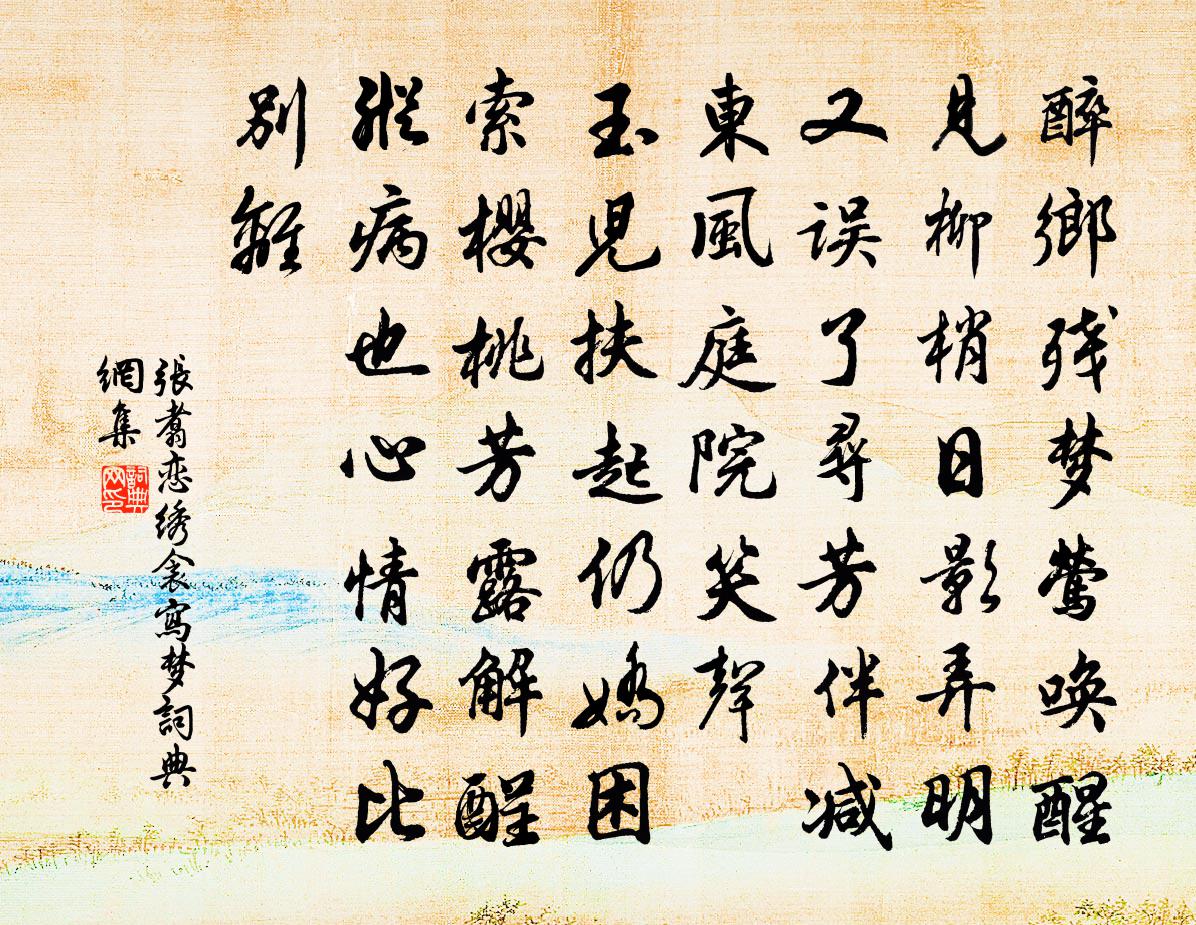 醉鄉残梦鶯唤醒
見柳梢日影弄明
又误了尋芳伴减
東風庭院笑聲
玉兒扶起仍嬌困
索櫻桃芳露解酲
縱病也心情好比
別離
張翥恋绣衾寫梦詞典
網集
詞典网印